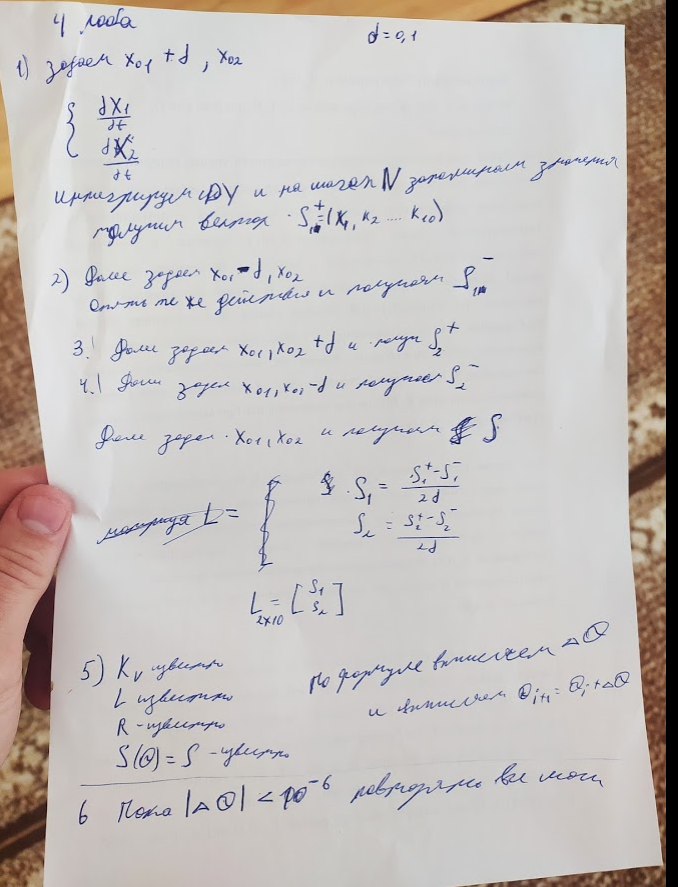 4 лаба
d = 0,1
1) задаем x₀₁ + d, x₀₂
{ dX₁/dt
dX₂/dt
интегрируем СДУ и на шагах N запоминаем значения
получим вектор S₁⁺ = (x₁, x₂ .... x₁₀)
2) Далее задаем x₀₁ - d, x₀₂
опять те же действия и получаем S₁⁻
3. Далее задаем x₀₁, x₀₂ + d и получ S₂⁺
4. Далее задаем x₀₁, x₀₂ - d и получаем S₂⁻
Далее задаем x₀₁, x₀₂ и получаем S
матрица L =
S₁ = (S₁⁺ - S₁⁻)/2d
S₂ = (S₂⁺ - S₂⁻)/2d
L₂ₓ₁₀ = [S₁ S₂]
5) Kν известно
L известно
R - известно
S(Q) = S - известно
По формуле вычисляем △Q
и вычисляем Qᵢ₊₁ = Qᵢ + △Q
6 Пока |△Q| < 10⁻⁶ повторяем все